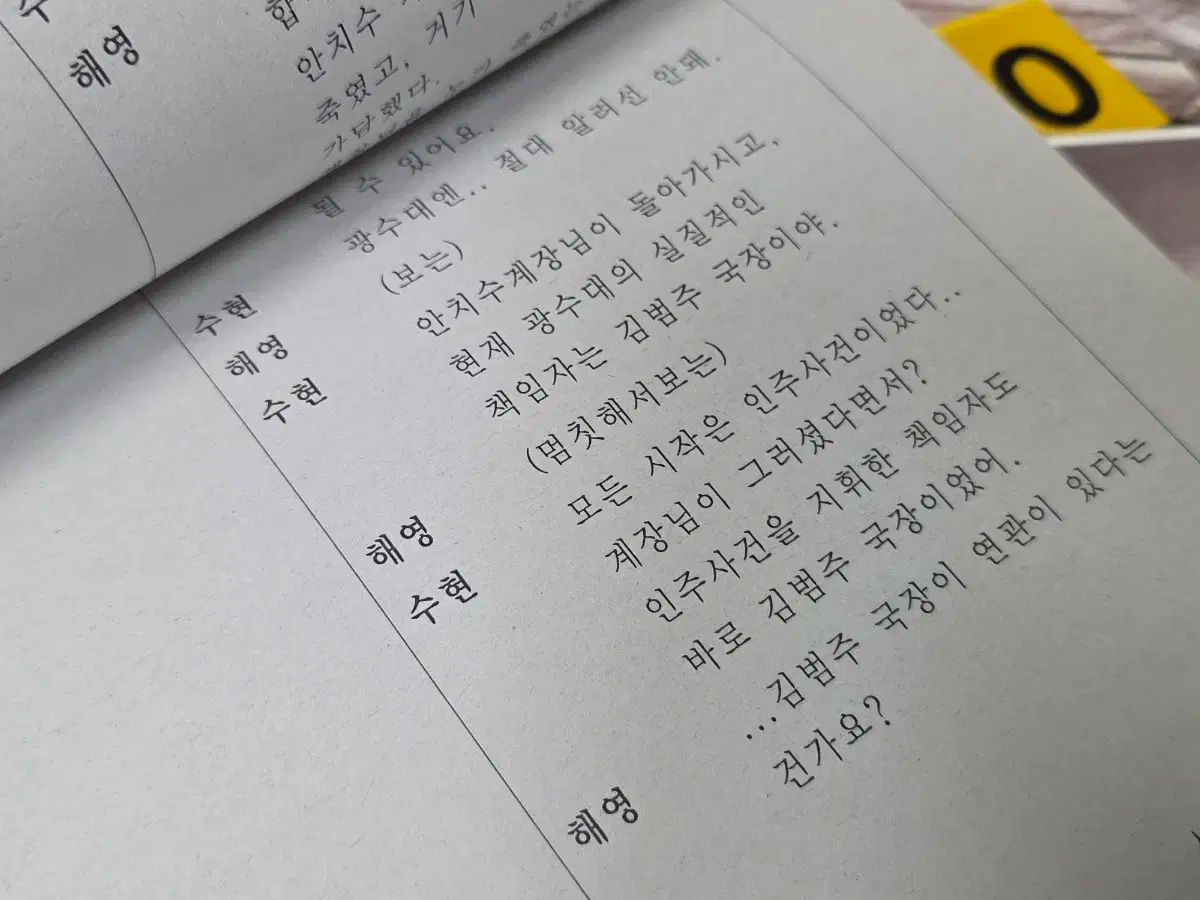 해영
안치수
죽였고, 거기
가담했다.
될 수 있어요.
수현 광수대엔.. 절대 알려선 안돼.
해영 (보는)
수현 안치수계장님이 돌아가시고,
현재 광수대의 실질적인
책임자는 김범주 국장이야.
해영 (멈칫해서보는)
수현 모든 시작은 인주사건이었다..
계장님이 그러셨다면서?
인주사건을 지휘한 책임자도
바로 김범주 국장이었어.
해영 ...김범주 국장이 연관이 있다는
건가요?